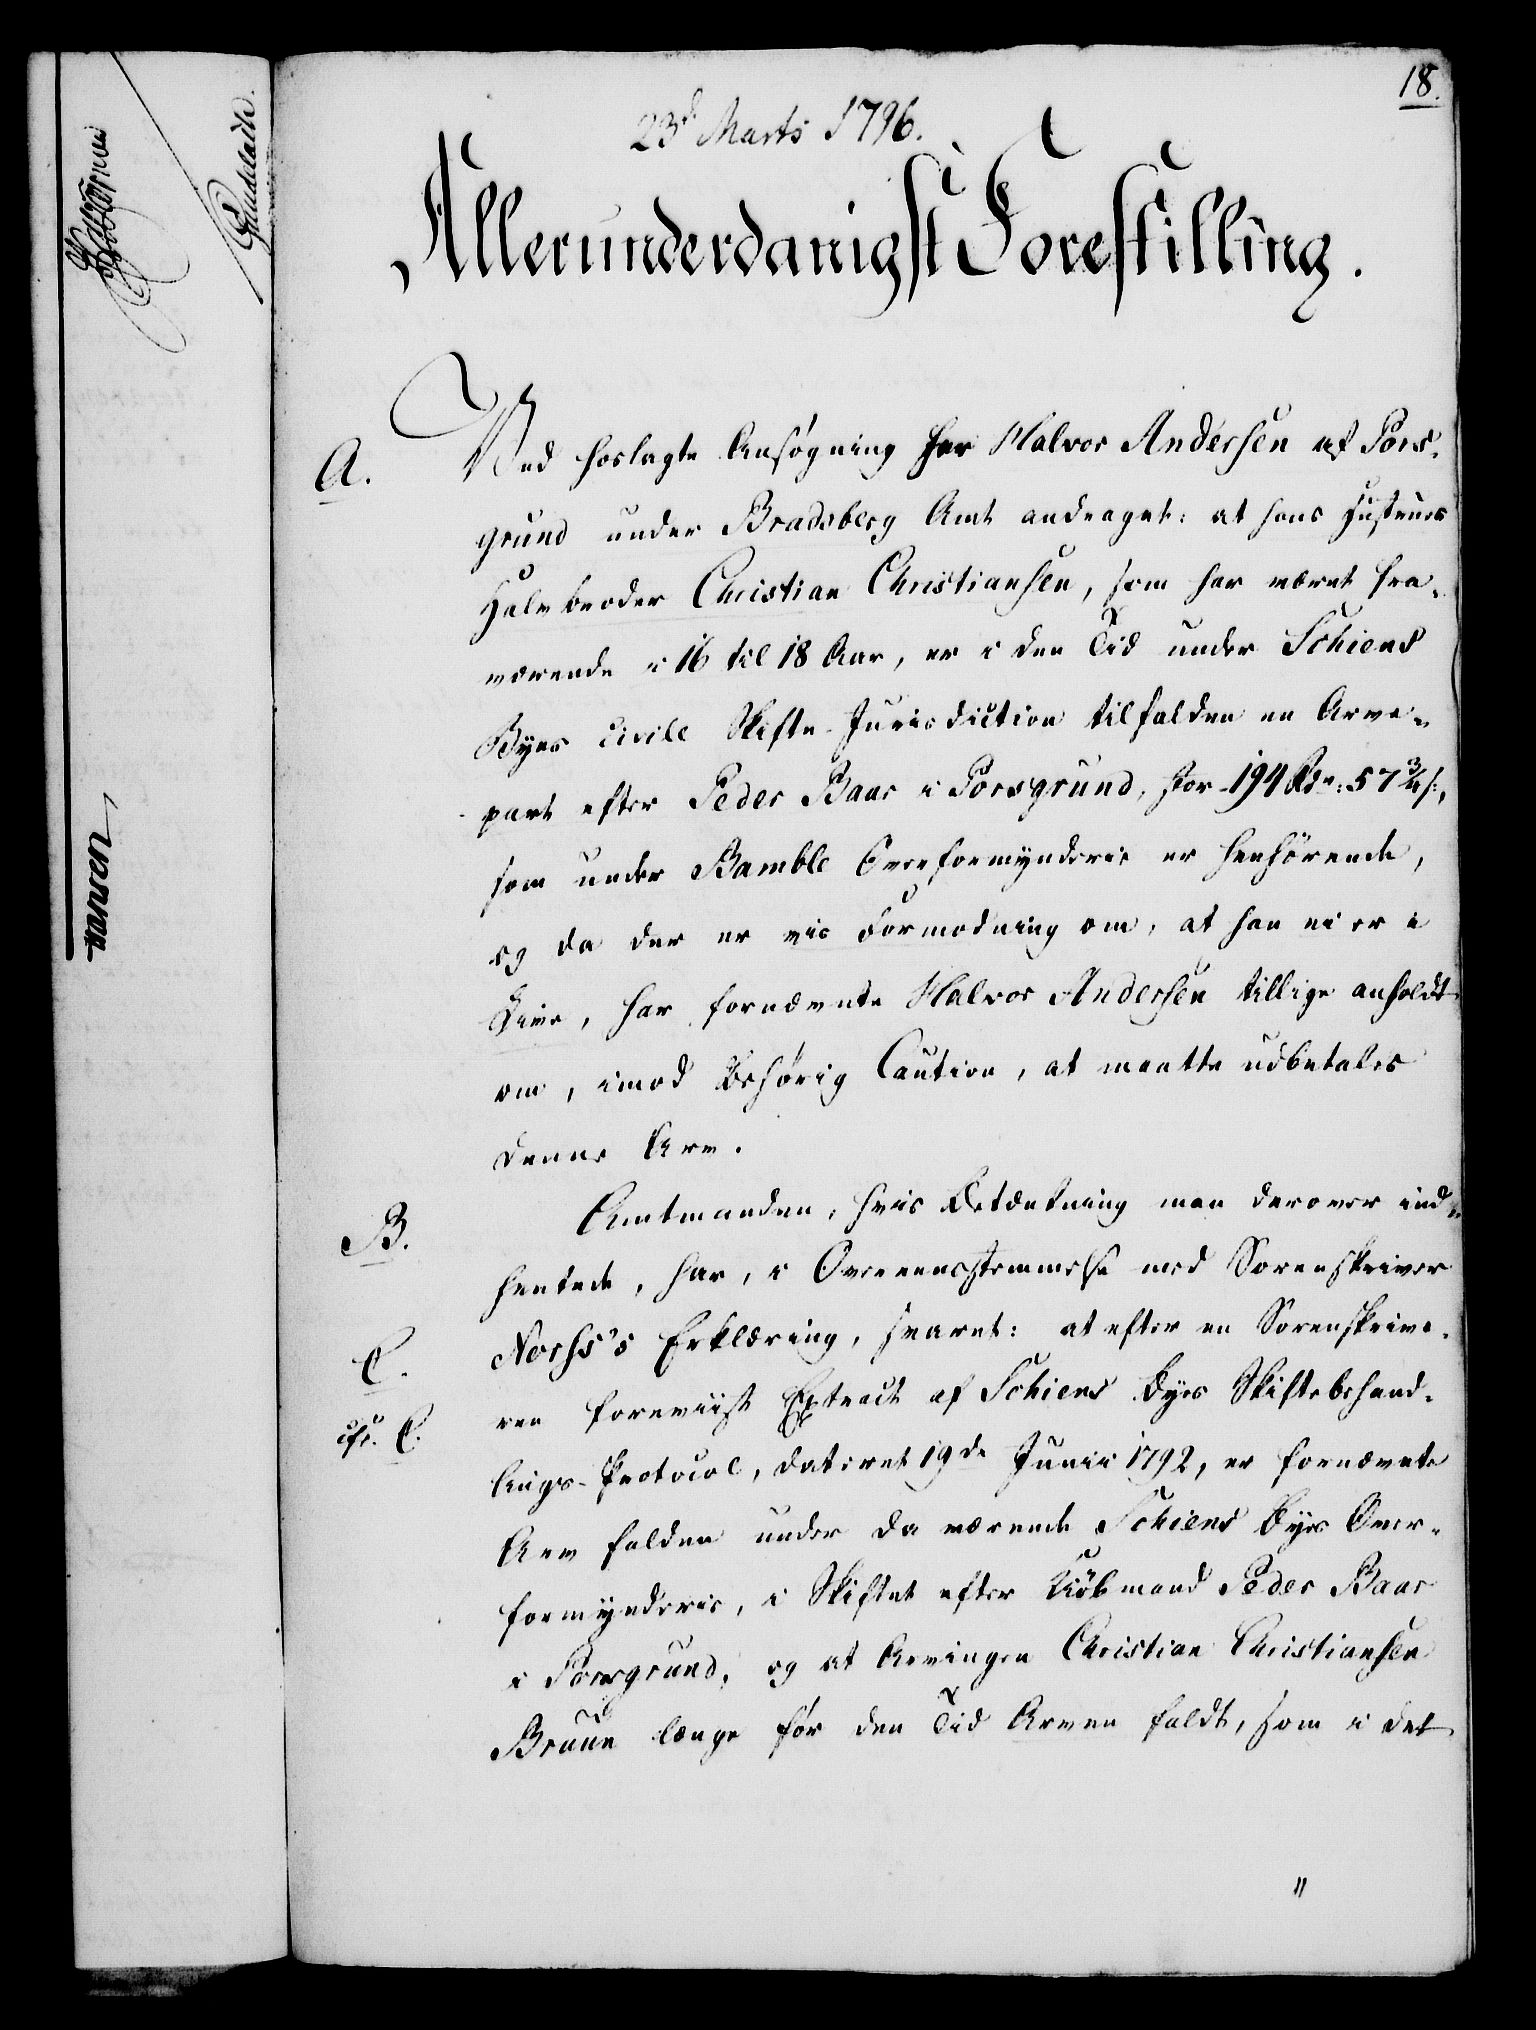 18.
23de Marts 1796.
Allerunderdanigst Forestilling.
A.
Ved hoslagte Ansøgning har Halvor Andersen af Pors-
grund under Bradsberg Amt andraget: at hans Hustrues
Halvbroder Christian Christiansen, som har været fra-
værende i 16 til 18 Aar, er i den Tid under Schiens
Byes civile Skifte-Jurisdiction tilfalden en Arve-
part efter Peder Baar i Porsgrund, stor 194 Rdr: 57 3/4 s:,
som under Bamble Overformynderie er henhørende,
og da der er vis Formodning om, at han ei er i
Live, har fornævnte Halvor Andersen tillige anholdt
om, imod behørig Caution, at maatte udbetales
denne Arv.
B.
Amtmanden, hvis Betænkning man derover ind-
hentede, har, i Overeensstemmelse med Sorenskriver
C.
Erklæring, svaret: at efter en Sorenskrive-
cfr. C.
ren foreviist Extract af Schiens Byes Skiftebehand-
lings-Protocol, dateret 19de Junii 1792, er fornævnte
Arv falden under da værende Schiens Byes Over-
formynderie, i Skiftet efter Kiöbmand Peder Baar
i Porsgrund, og at Arvingen Christian Christiansen
Bruun længe før den Tid Arven faldt, som i det
"